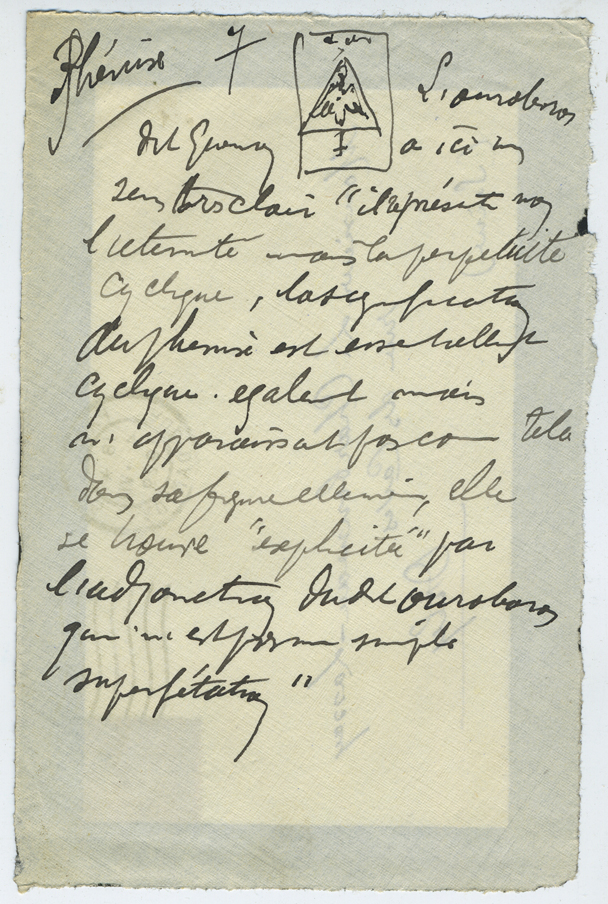 Phénix 7
L'ouroboros
dit Guenon a ici un
sens très clair "il représente non
l'eternité mais la perpetuité
cyclique, la signification
du phenix est essentiellement
cyclique egalement mais
n'apparaissant pas comme telle
dans sa figure elle même, elle
se trouve "explicitée" par
l'adjonction dudit ouroboros
qui n'est pas une simple
superfétation"